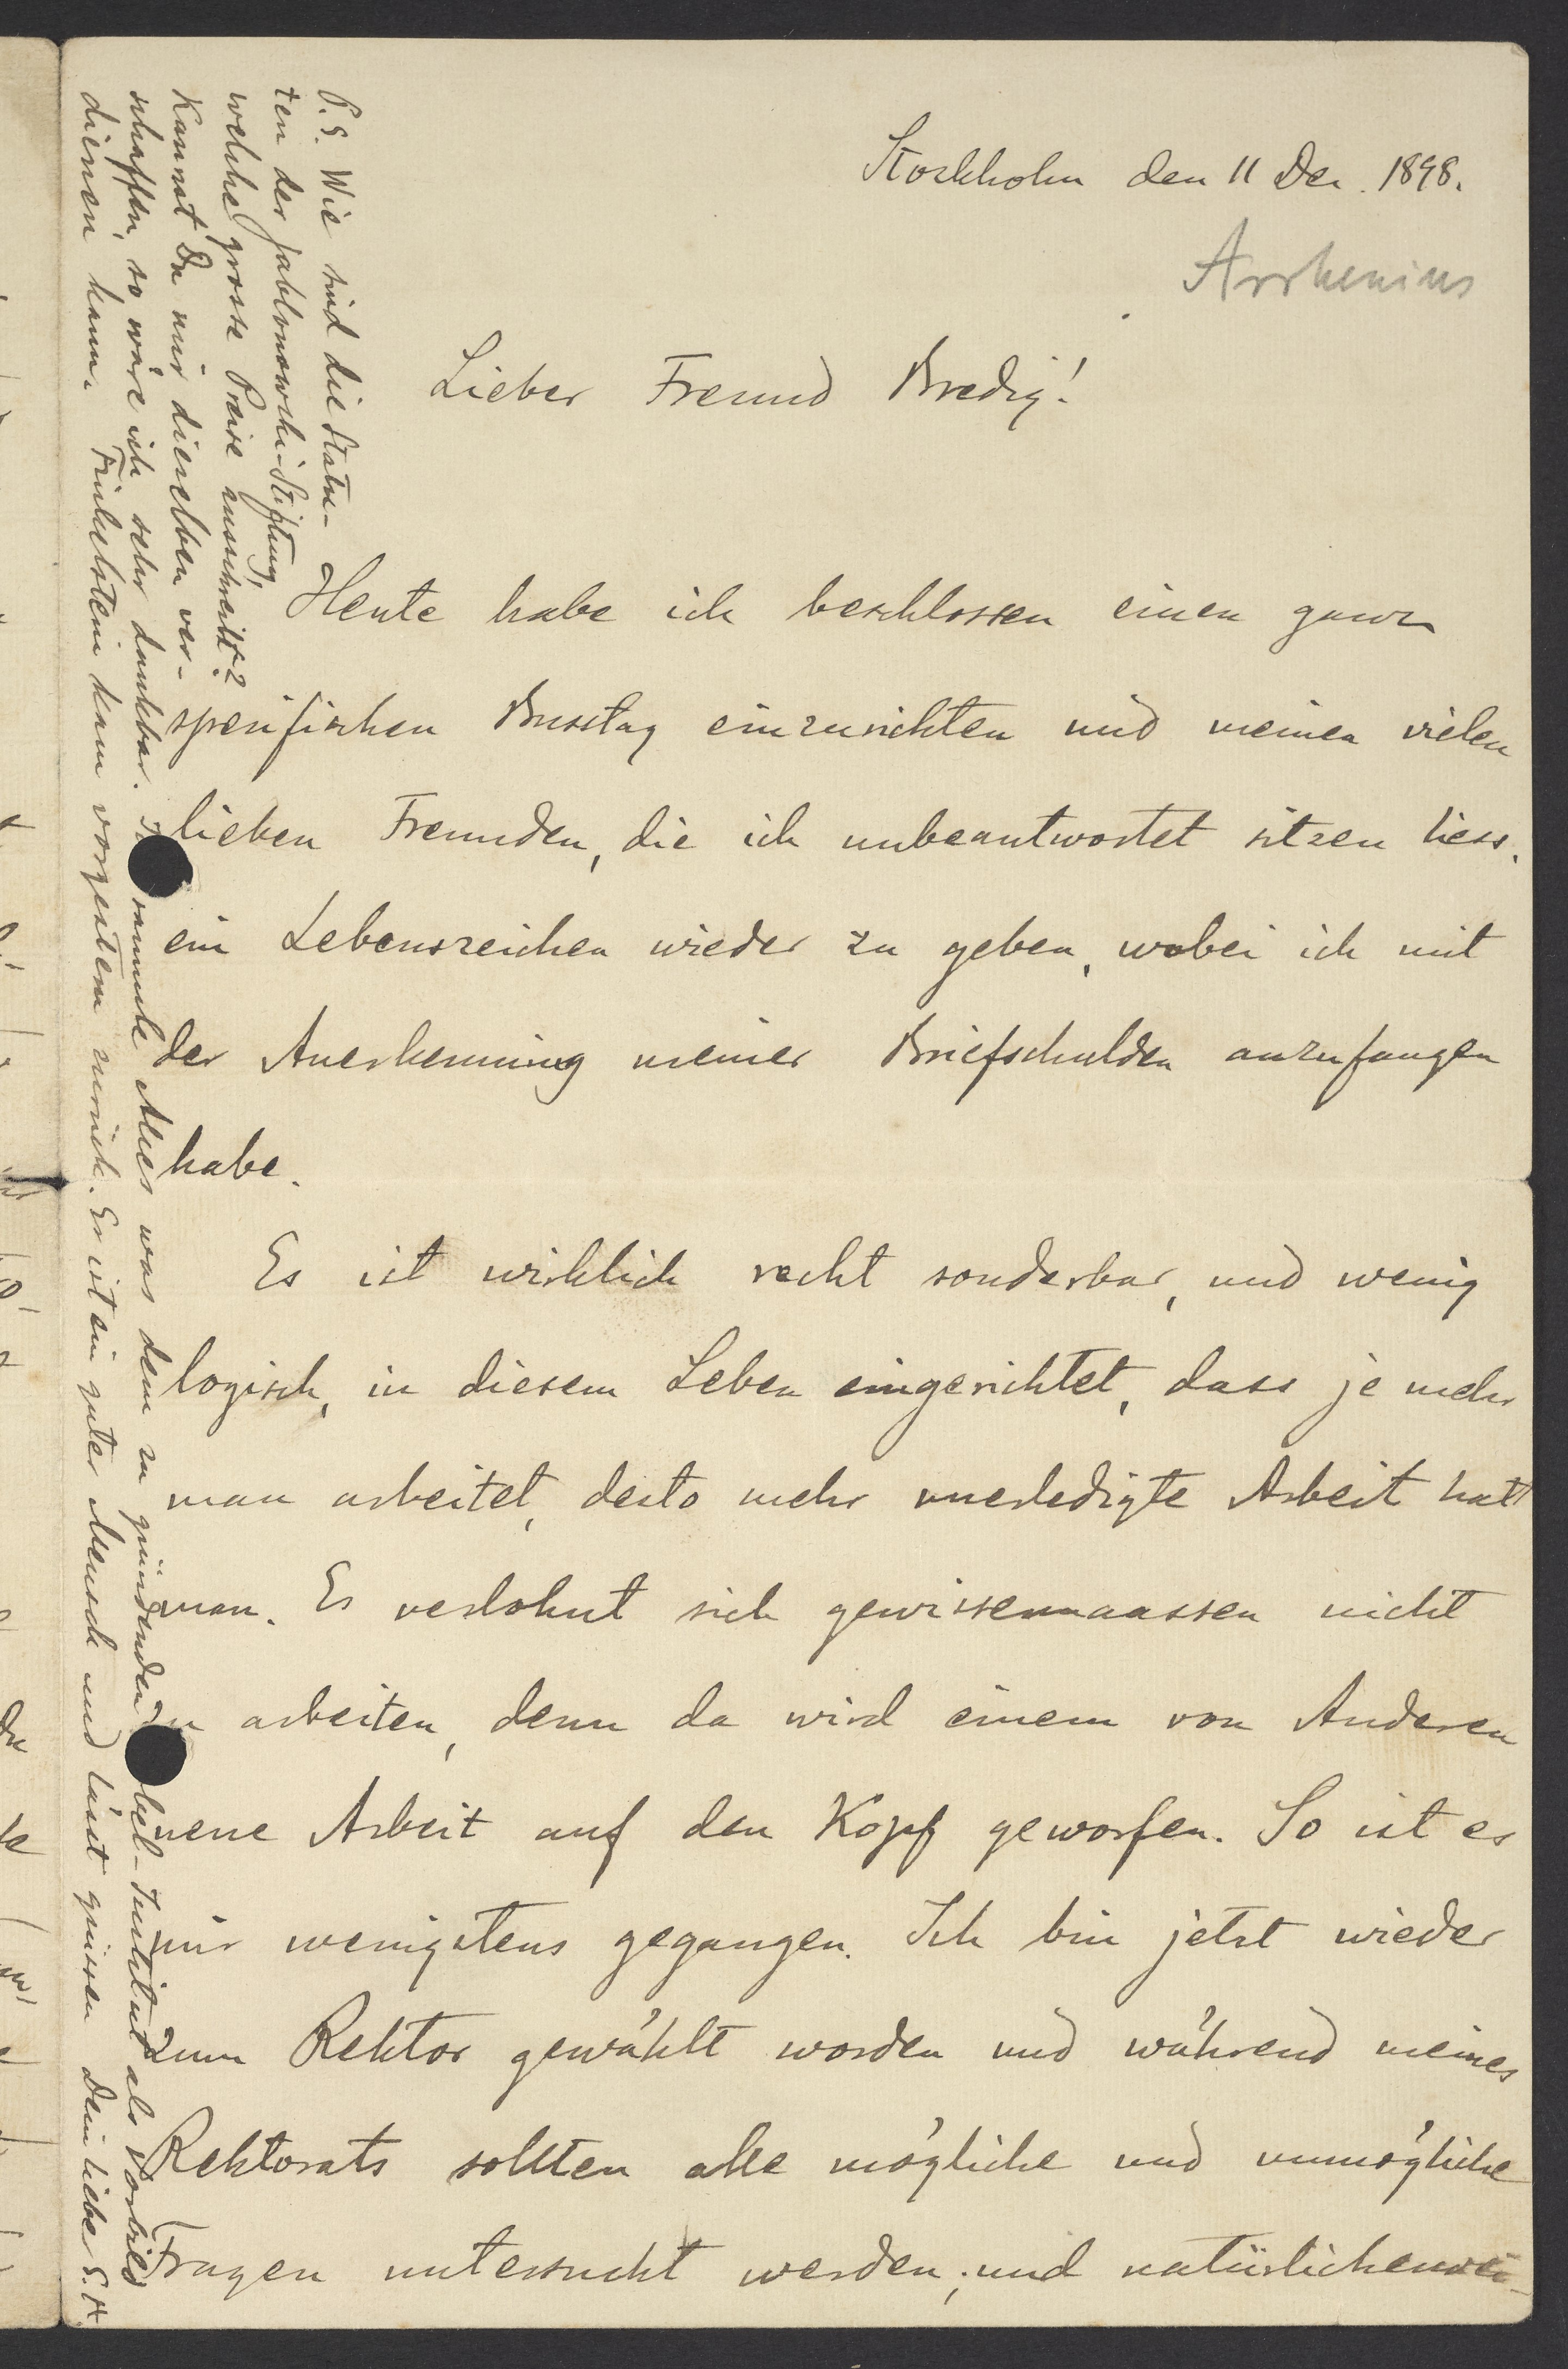 Stockholm den 11 Dec. 1898.
Arrhenius
Lieber Freund Bredig!
Heute habe ich beschlossen einen ganz
specifischen Busstag einzurichten und meinen vielen
lieben Freunden, die ich unbeantwortet sitzen liess,
ein Lebenszeichen wieder zu geben, wobei ich mit
der Anerkennung meiner Briefschulden anzufangen
habe.
Es ist wirklich recht sonderbar, und wenig
logisch, in diesem Leben eingerichtet, dass je mehr
man arbeitet, desto mehr unerledigte Arbeit hat
man. Es verlohnt sich gewissermaassen nicht
zu arbeiten, denn da wird einem von Anderen
neue Arbeit auf den Kopf geworfen. So ist es
mir wenigstens gegangen. Ich bin jetzt wieder
zum Rektor gewählt worden und während meines
Rektorats sollten alle mögliche und unmögliche
Fragen untersucht werden; und natürlicherwei-
P.S. Wie sind die Statu-
ten der Jablonowski-Stiftung,
welche grosse Preise ausschreibt?
Kannst Du mir dieselben ver-
schaffen, so wäre ich sehr dankbar. sammle Alles was dem zu gründenden bel-Institut als Vorbild
dienen kann. Finkelstein kam vorgestern zurück. Er ist ein guter Mensch und lässt grüssen Dein lieber S. A.